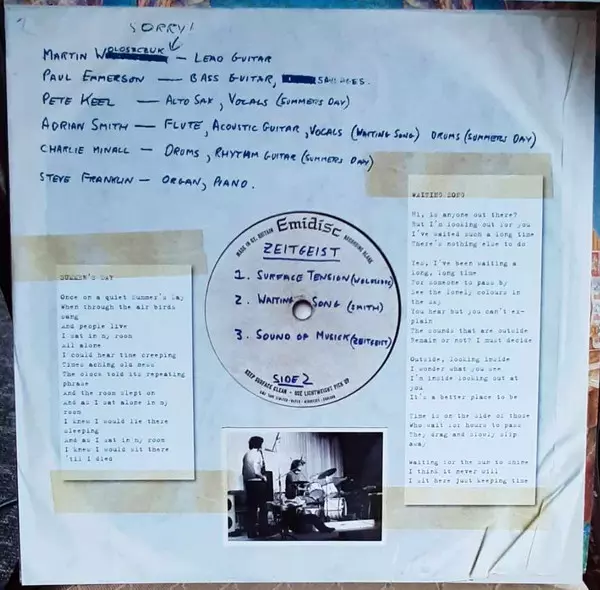 SORRY!
MARTIN WOLOSZCZUK — LEAD GUITAR
PAUL EMMERSON — BASS GUITAR,
PETE KEEL — ALTO SAX, VOCALS (SUMMERS DAY)
ADRIAN SMITH — FLUTE, ACOUSTIC GUITAR, VOCALS (WAITING SONG) DRUMS (SUMMERS DAY)
CHARLIE MINALL — DRUMS, RHYTHM GUITAR (SUMMERS DAY)
STEVE FRANKLIN — ORGAN, PIANO.
WAITING SONG
Hi, is anyone out there?
But I'm looking out for you
I've waited such a long time
There's nothing else to do
Yes, I've been waiting a
long, long time
For someone to pass by
See the lonely colours in
the sky
You hear but you can't ex-
plain
The sounds that are outside
Remain or not? I must decide
Outside, looking inside
I wonder what you see
I'm inside looking out at
you
It's a better place to be
Time is on the side of those
who wait for hours to pass
They drag and slowly slip
away
Waiting for the sun to shine
I think it never will
I sit here just keeping time
MADE IN GT. BRITAIN Emidisc RECORDING BLANK
ZEITGEIST
1. SURFACE TENSION
2. WAITING SONG (SMITH)
3. SOUND OF MUSICK (ZEITGEIST)
SIDE 2
KEEP SURFACE CLEAN - USE LIGHTWEIGHT PICK UP
SUMMER'S DAY
Once on a quiet Summer's Day
When through the air birds
sang
And people live
I sat in my room
All alone
I could hear time creeping
Times aching old news
The clock told its repeating
phrase
And the room slept on
And as I sat alone in my
room
I knew I would lie there
sleeping
And as I sat in my room
I knew I would sit there
'til I died